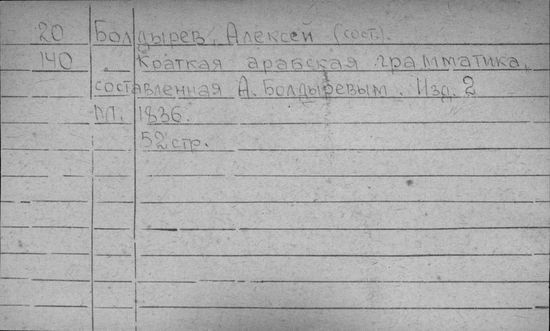 20 Болдырев, Алексей (сост.).
140 Краткая арабская грамматика,
составленная А. Болдыревым. Изд. 2
М. 1836.
52 стр.